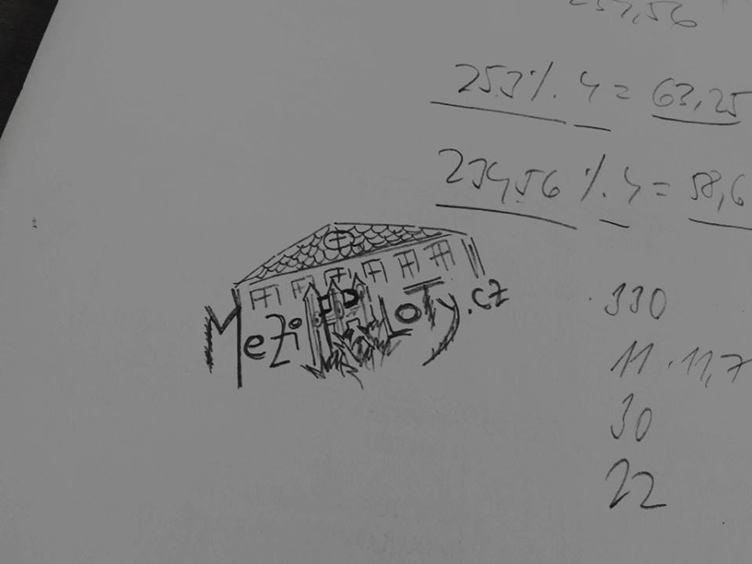 253 % 4 = 63,25
234,56 % 4 = 58,6
MeZi PLoTy.cz
330
11 . 11,7
30
22